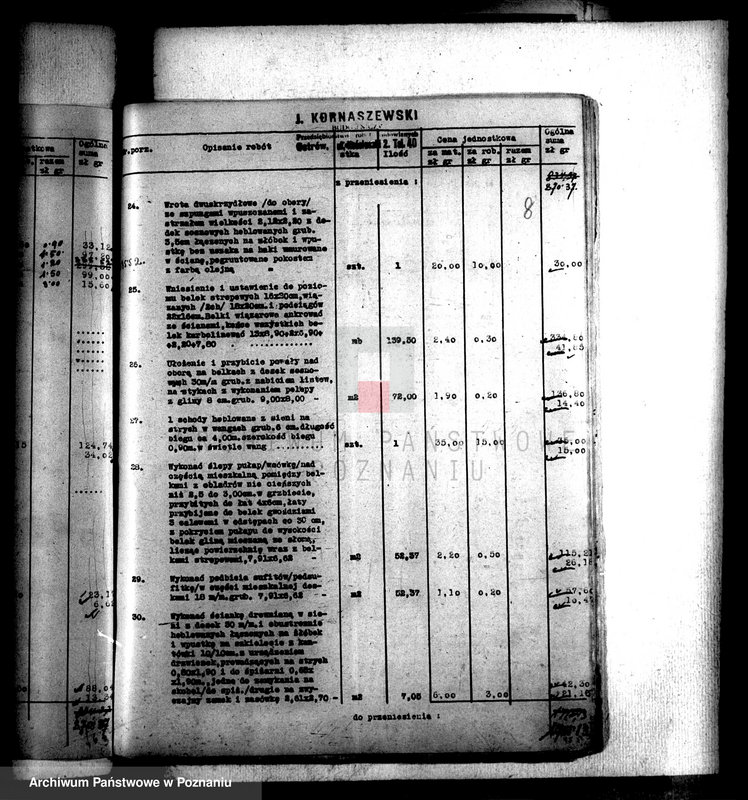 J. KORNASZEWSKI
Ostrów, 2. Tel. 40
w.porz. Opisanie robót sztka Ilość Cena jednostkowa Ogólna suma
za mat. za rob. razem
zł gr zł gr zł gr zł gr
z przeniesienia :
8
24. Wrota dwuskrzydłowe /do obory/
ze szpungami wpuszczanemi i za-
strzałem wielkości 2,12x2,20 z de-
sek sosnowych heblowanych grub.
3,5cm łączonych na żłóbek i wpu-
stkę bez uszaka na haki wmurowane
w ścianę, pogruntowane pokostem
z farbą olejną - szt. 1 20,00 10,00 30,00
25. Wniesienie i ustawienie do pozio-
mu belek stropowych 15x20cm, wią-
zanych /Zeh/ 18x20cm. i podciągów
Belki wiązarowe ankrować
ze ścianami, końce wszystkich be-
lek karbolizować
+2,20+7,80 mb 139,50 2,40 0,30 334,80
41,85
26. Ułożenie i przybicie powały nad
oborą na belkach z desek sosno-
wych 30m/m grub. z nabiciem listew,
na stykach z wykonaniem polepy
z gliny 8 cm. grub. 9,00x8,00 - m2 72,00 1,90 0,20 136,80
14,40
27. 1 schody heblowane z sieni na
strych w wangach grub. 6 cm. długość
biegu ca 4,00m. szerokość biegu
0,90m. w świetle wang szt. 1 35,00 15,00 35,00
15,00
28. Wykonać ślepy pułap/wsówkę/nad
częścią mieszkalną pomiędzy bel-
kami z obladrów nie cieńszych
niż 2,5 do 3,00cm. w grzbiecie,
przybitych do łat 4x6cm, łaty
przybijane do belek gwoździami
3 calowemi w odstępach co 30 cm,
z pokryciem pułapu do wysokości
belek gliną mieszaną ze słomą,
licząc powierzchnię wraz z bel-
kami stropowemi, 7,91x6,62 - m2 52,37 2,20 0,50 115,21
26,18
29. Wykonać podbicie sufitów/podsu-
fitkę/w części mieszkalnej des-
kami 18 m/m. grub. 7,91x6,62 - m2 52,37 1,10 0,20 57,60
10,47
30. Wykonać ściankę drewnianą w sie-
ni z desek 30 m/m. i obustronnie
heblowanych łączonych na żłóbek
i wpustkę na szkielecie z kan-
tówki 10/10cm. z urządzeniem
drzwiczek, prowadzących na strych
0,80x1,90 i do śpiżarni
x1,80m., jedne do zamykania na
skobel/do spiż./drugie na zwy-
czajny zamek i zasówkę 2,61x2,70 - m2 7,05 6,00 3,00 42,30
21,15
do przeniesienia :
Ogólna
suma
zł gr
razem
zł gr
33,12
99,00
15,60
124,74
34,02
Archiwum Państwowe w Poznaniu